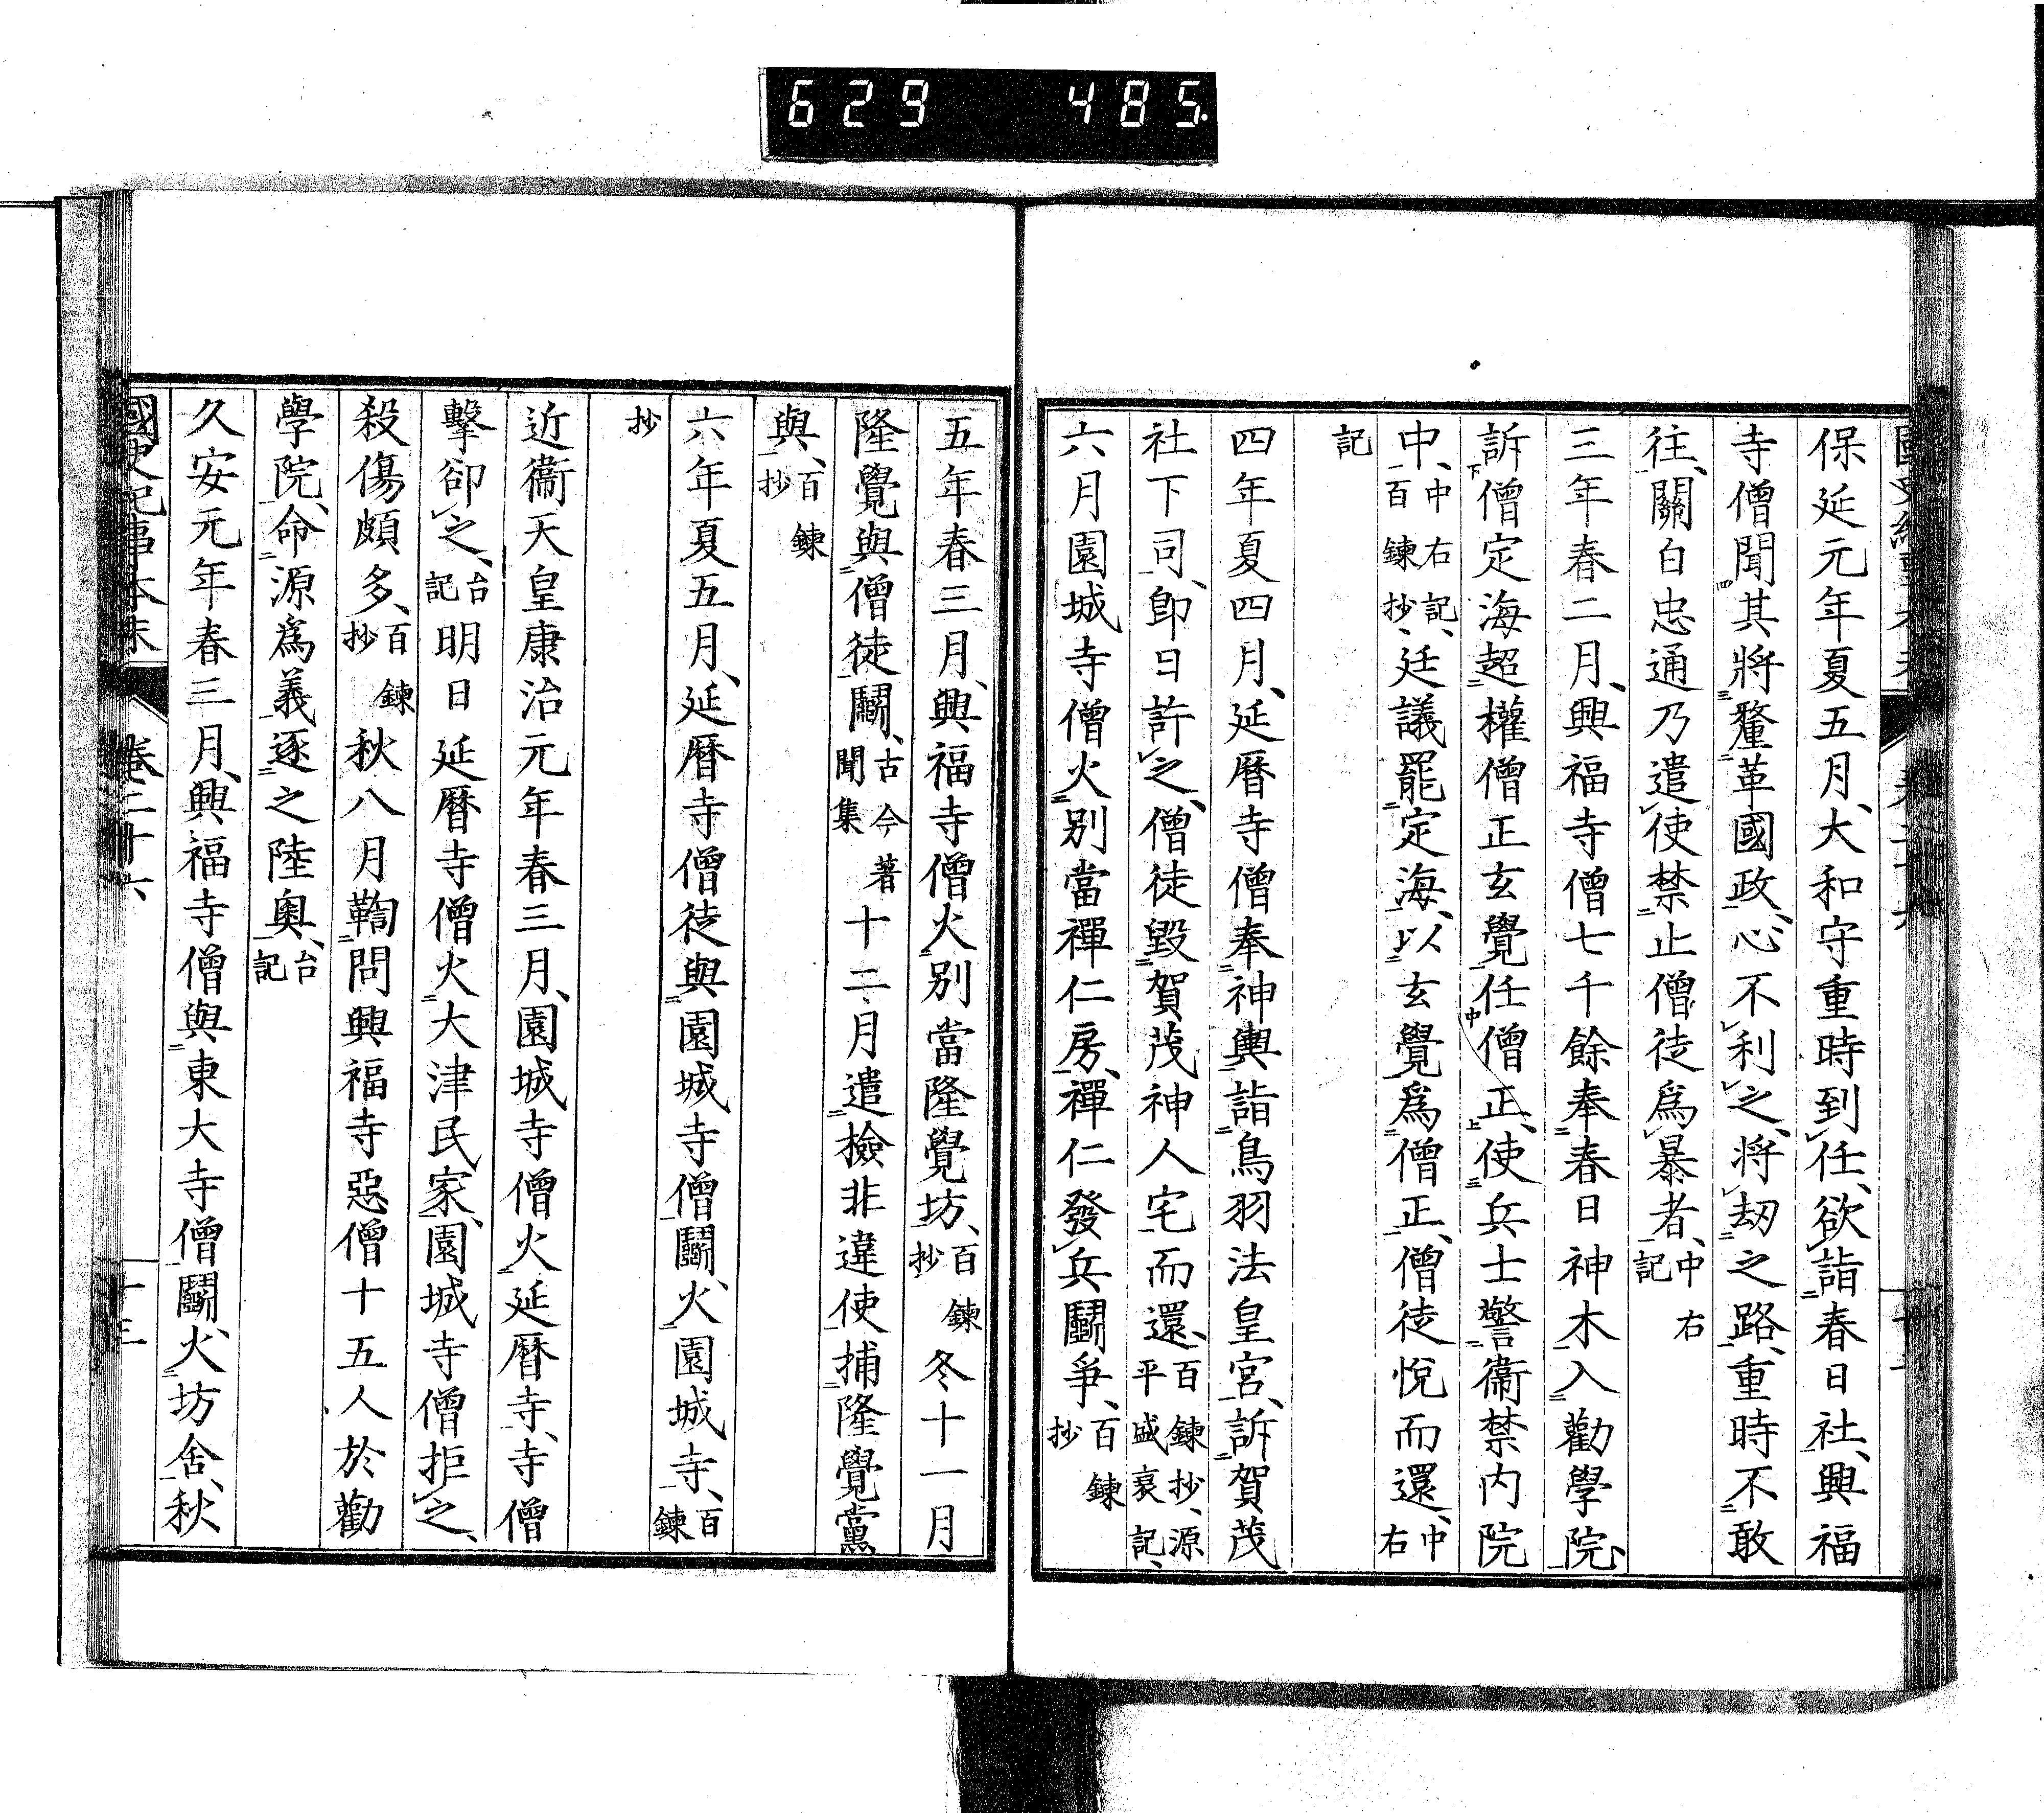 629 485.
保延元年夏五月、大和守重時到任、欲詣春日社、興福
寺僧聞其將釐革國政、心不利之、將劫之路、重時不敢
往、關白忠通乃遣使禁止僧徒爲暴者、中右記
三年春二月、興福寺僧七千餘奉春日神木入勸學院、
訴僧定海超權僧正玄覺任僧正、使兵士警衞禁內院
中、中右記、百鍊抄、廷議罷定海、以玄覺爲僧正、僧徒悅而還、中右
記
四年夏四月、延曆寺僧奉神輿詣鳥羽法皇宮、訴賀茂
社下司、卽日許之、僧徒毀賀茂神人宅而還、百鍊抄、源平盛衰記、
六月園城寺僧火別當禪仁房、禪仁發兵鬪爭、百鍊抄
五年春三月、興福寺僧火別當隆覺坊、百鍊抄冬十一月
隆覺與僧徒鬪、古今著聞集十二月遣檢非違使捕隆覺黨
與、百鍊抄
六年夏五月、延曆寺僧徒與園城寺僧鬪、火園城寺、百鍊
抄
近衞天皇康治元年春三月、園城寺僧火延曆寺、寺僧
擊卻之、台記明日延曆寺僧火大津民家、園城寺僧拒之、
殺傷頗多、百鍊抄秋八月鞫問興福寺惡僧十五人於勸
學院、命源爲義逐之陸奧、台記
久安元年春三月、興福寺僧與東大寺僧鬪、火坊舍、秋
國史紀事本末 卷二十六 十三